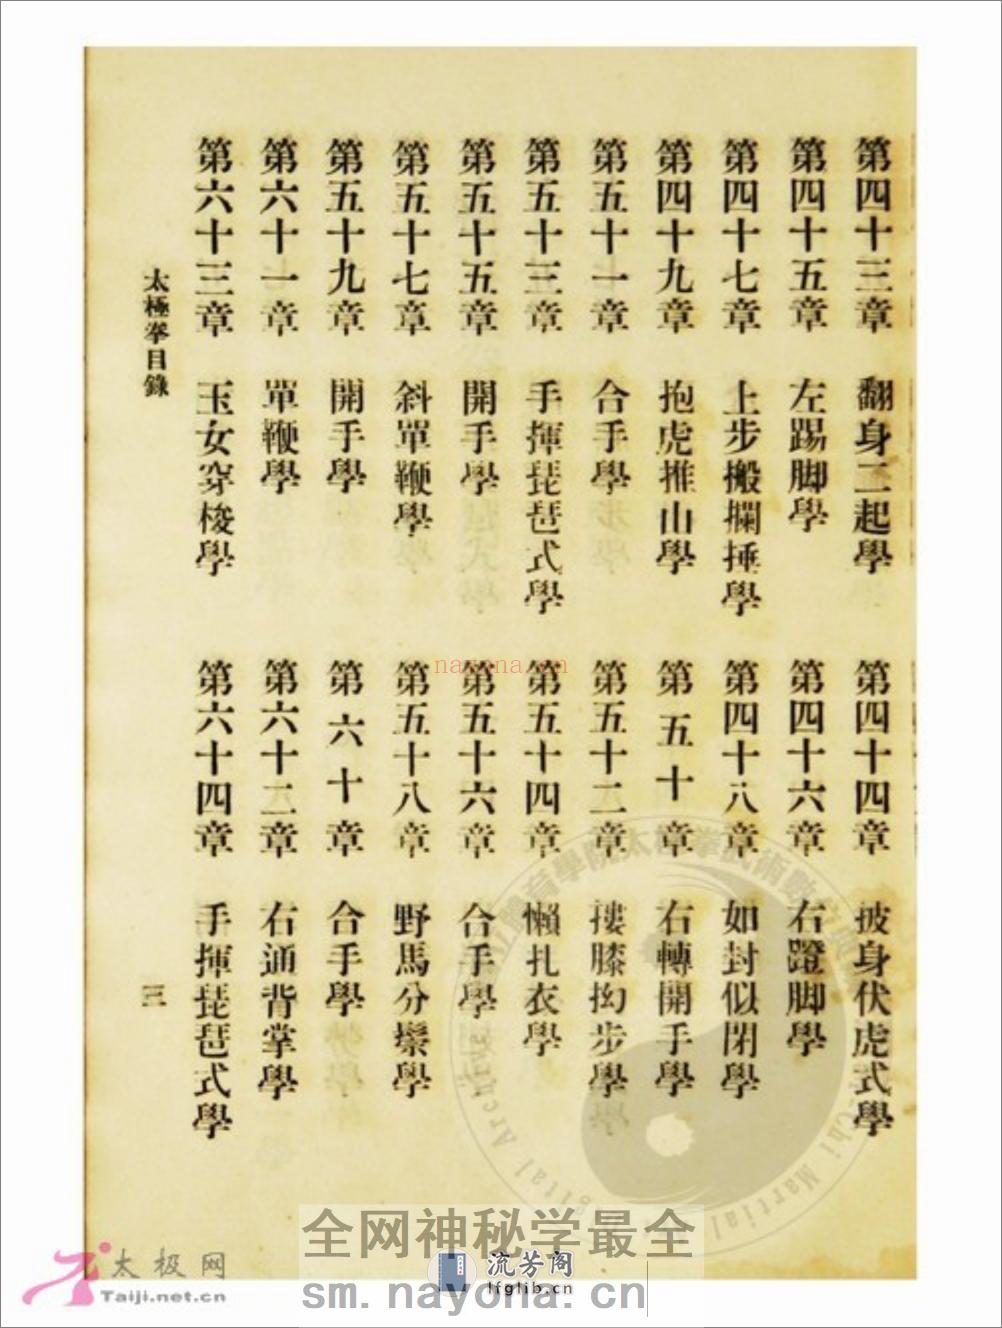 第四十三章　翻身二起學　第四十四章　披身伏虎式學
第四十五章　左踢脚學　第四十六章　右蹬脚學
第四十七章　上步搬攔捶學　第四十八章　如封似閉學
第四十九章　抱虎推山學　第五十章　右轉開手學
第五十一章　合手學　第五十二章　摟膝拗步學
第五十三章　手揮琵琶式學　第五十四章　懶扎衣學
第五十五章　開手學　第五十六章　合手學
第五十七章　斜單鞭學　第五十八章　野馬分鬃學
第五十九章　開手學　第六十章　合手學
第六十一章　單鞭學　第六十二章　右通背掌學
第六十三章　玉女穿梭學　第六十四章　手揮琵琶式學
太極拳目錄　三
nayona.cn
全网神秘学最全
sm.nayona.cn
流芳阁
lfglib.cn
太极网
Taiji.net.cn